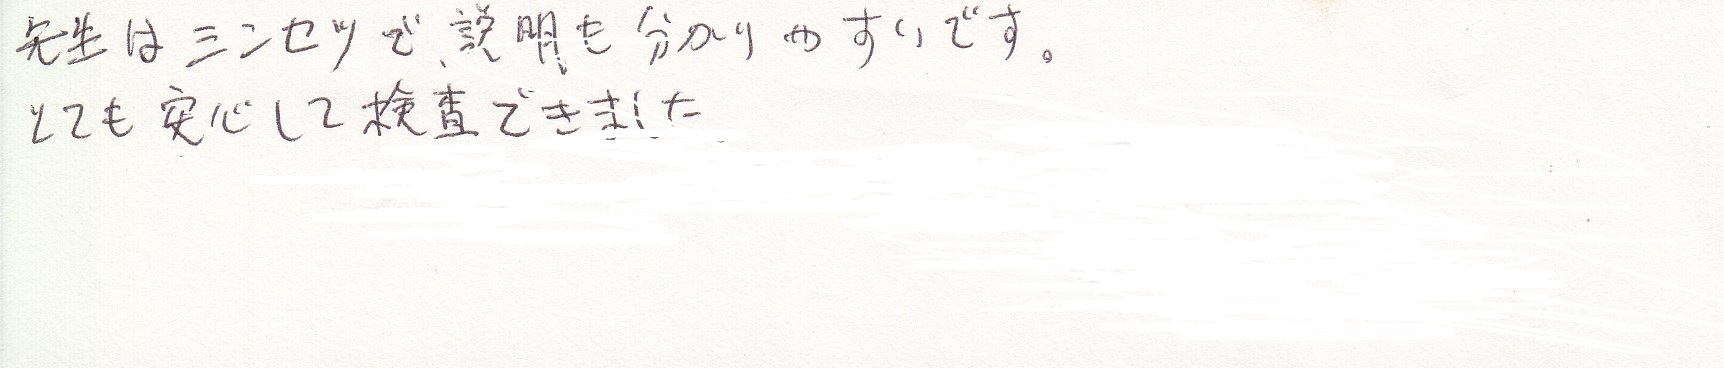 先生はシンセツで、説明も分かりやすいです。
とても安心して検査できました